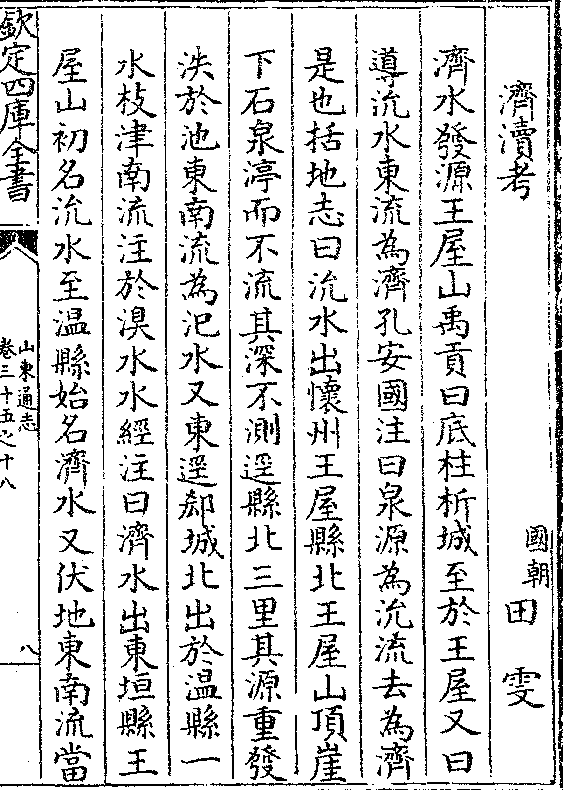 濟瀆考
國朝田雯
濟水發源王屋山禹貢曰底柱析城至於王屋又曰
導沇水東流為濟孔安國注曰泉源為沇流去為濟
是也括地志曰沇水出懷州王屋縣北王屋山頂崖
下石泉渟而不流其深不測逕縣北三里其源重發
泆於池東南流為汜水又東逕郄城北出於温縣一
水枝津南流注於溴水水經注曰濟水出東垣縣王
屋山初名沇水至温縣始名濟水又伏地東南流當
欽定四庫全書
山東通志
卷三十五之十八
八